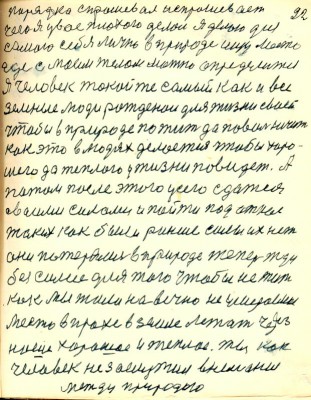 92
порядка спрашевал испрашевает
чего я у вас плохого делаю я делаю для
самого себя лично в природе ищу место
где с моим телом можно определится
я человек такой те самый как и все
земные люди рожденаи для жизни своей
чтобы в природе пожит да
как это в людях делается чтобы хоро-
шего да теплого у жизни повидет. А
патом после этого усего сдатся
своими силами и пойти под
таких как были раньше силы их нет
они потерялис в природе тепер
без силие для того чтобы не жит
как мы жили на вечно не
место в прахе в земле лежат через
наше харошое и теплое. ты как
человек не заслужил внимания
между природою